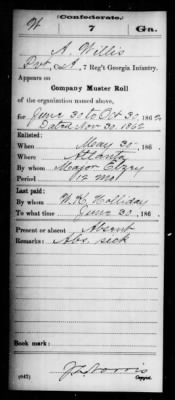 Confederate.
W 7 Ga.
A. Willis
Pvt, Co. A, 7 Reg't Georgia Infantry.
Appears on
Company Muster Roll
of the organization named above,
for June 30 to Oct 30, 1862
Dated Nov 30, 1862
Enlisted:
When May 31, 186
Where Atlanta
By whom Major
Period 12 mo
Last paid:
By whom W. K. Holliday
To what time June 30, 186
Present or absent Absent
Remarks: Abs. sick
Book mark:
(642) Copyist.